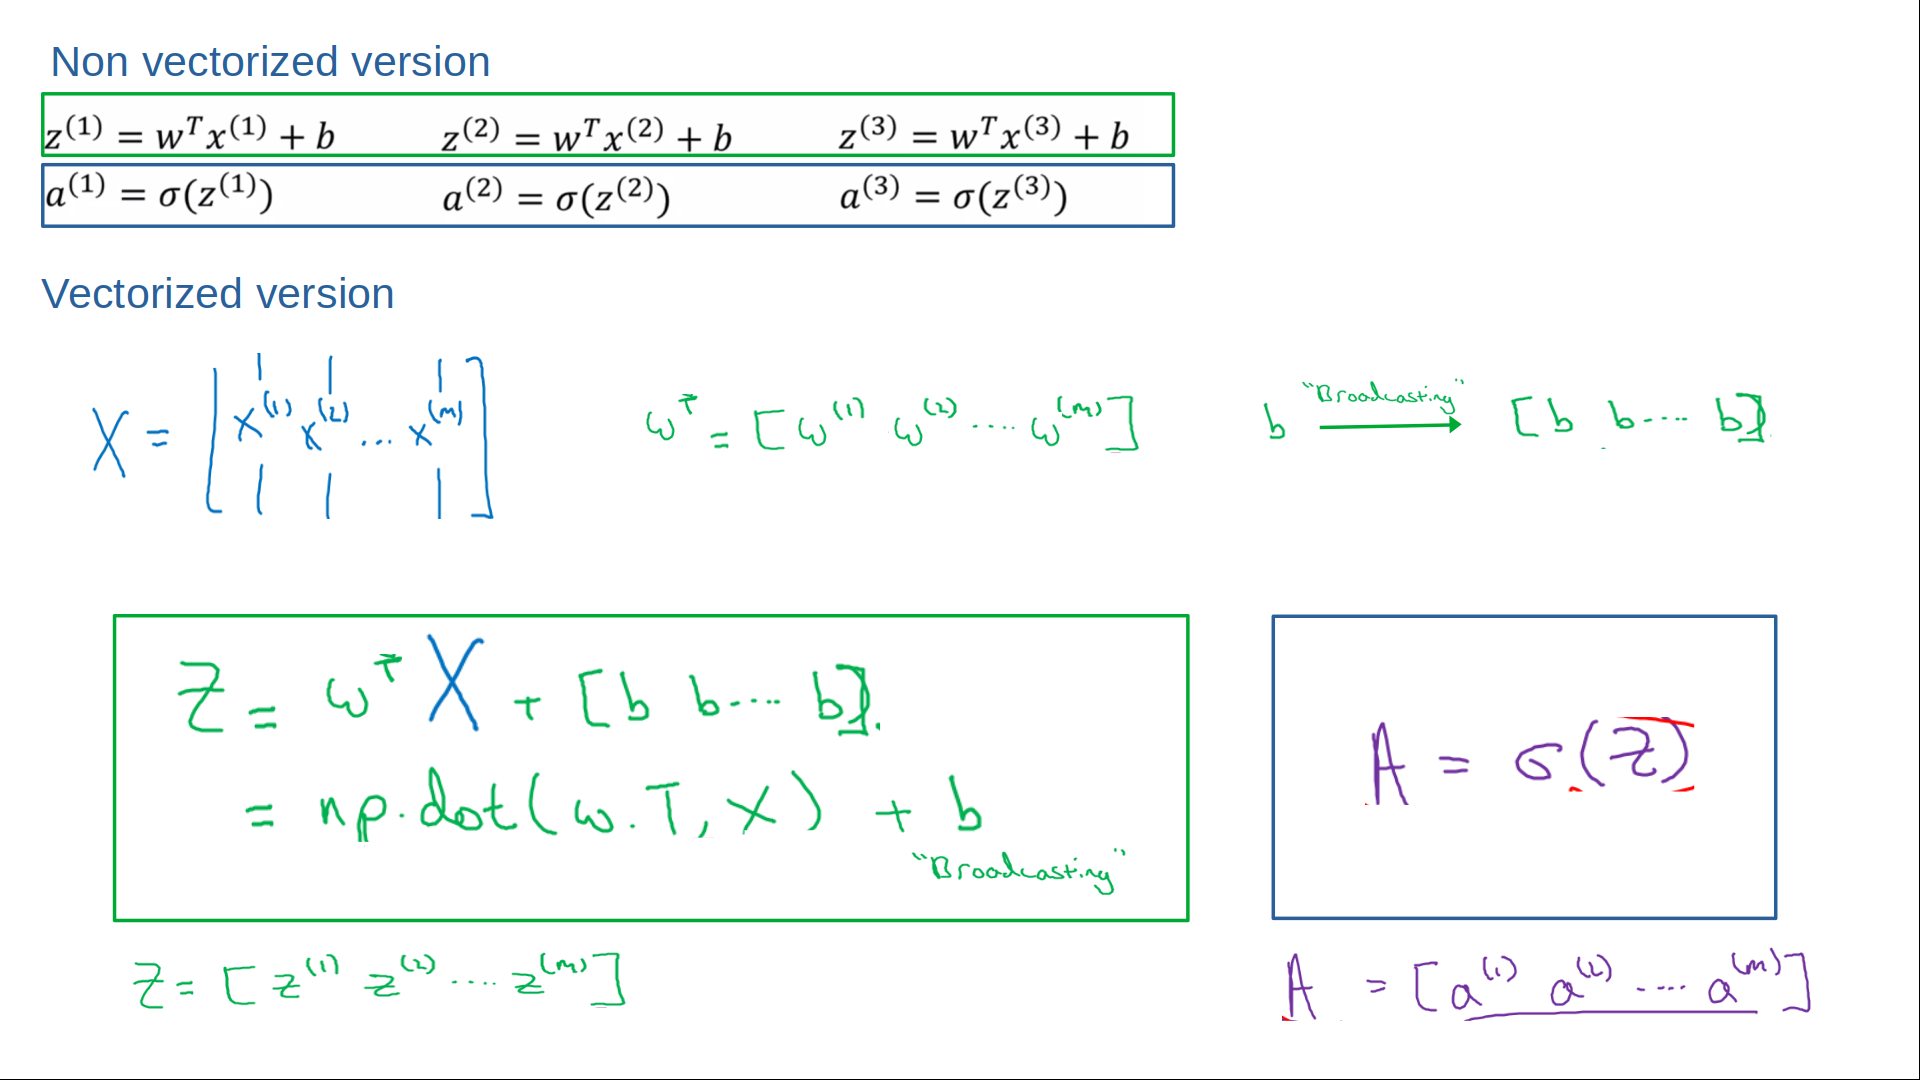 Non vectorized version
z^(1) = w^T x^(1) + b z^(2) = w^T x^(2) + b z^(3) = w^T x^(3) + b
a^(1) = σ(z^(1)) a^(2) = σ(z^(2)) a^(3) = σ(z^(3))
Vectorized version
X = [x^(1) x^(2) ... x^(m)] ω^T = [ω^(1) ω^(2) .... ω^(m)] b "Broadcasting" [b b .... b]
Z = ω^T X + [b b .... b]
= np.dot(ω.T, X) + b
"Broadcasting"
A = σ(Z)
Z = [z^(1) z^(2) .... z^(m)]
A = [a^(1) a^(2) .... a^(m)]